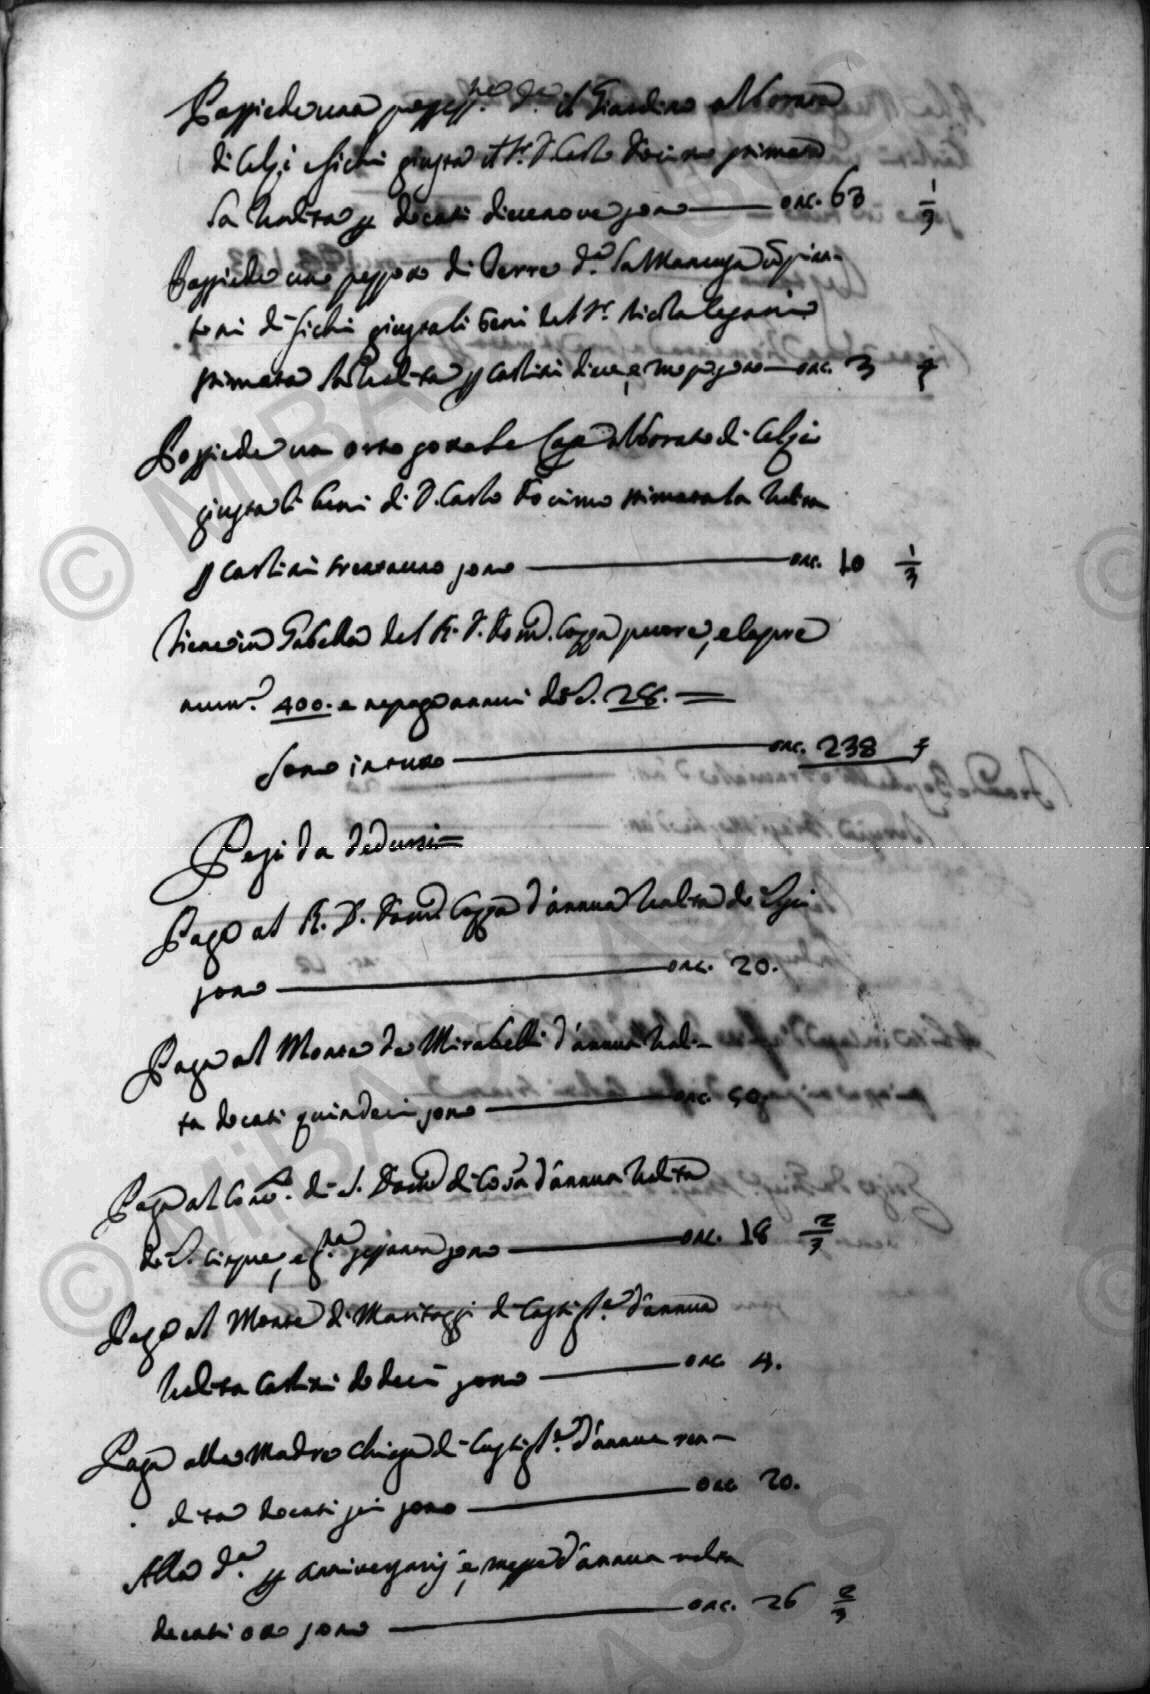 Possiede una possess.ne d.a il Giardino alborata
di Celzi e fichi giusta il S.r D. Carlo Focino stimata
la rendita p docati dicenove sono — onc. 63 1/3
Possiede uno pezzo di Terre d.a la Manca
toni di fichi giusta li beni del S.r Nicola
stimata la rendita p carlini diece, e mezzo sono — onc. 3
Possiede un orto sotto le Case alborato di Celzi
giusta li beni di D. Carlo Focino stimata la rendita
p carlini trentauno sono — onc. 10 1/3
Tiene in Gabella del R. D. Dom. Coppa pecore, e
num.o 400. e ne paga annui doc. 28. =
Sono in tutto — onc. 238
Pesi da dedursi =
Paga al R. D. Dom. Coppa d'annua rendita doc. sei
sono — onc. 20.
Paga al Monte de Mirabelli d'annua rendi-
ta docati quindeci sono — onc. 50.
Paga al Conv. di S. Dom. di Cos.a d'annua rendita
doc. cinque, e g.na sessanta sono — onc. 18 2/3
Paga al Monte di Maritaggi di Castigl.e d'annua
rendita carlini dodeci sono — onc. 4.
Paga alla Madre chiesa di Castigl.e d'annua ren-
dita docati sei sono — onc. 20.
Alla d.a p anniversarij, e messe d'annua rendita
docati otto sono — onc. 26 2/3
© MiBAC - ASCS
© MiBAC - ASCS
ASCS